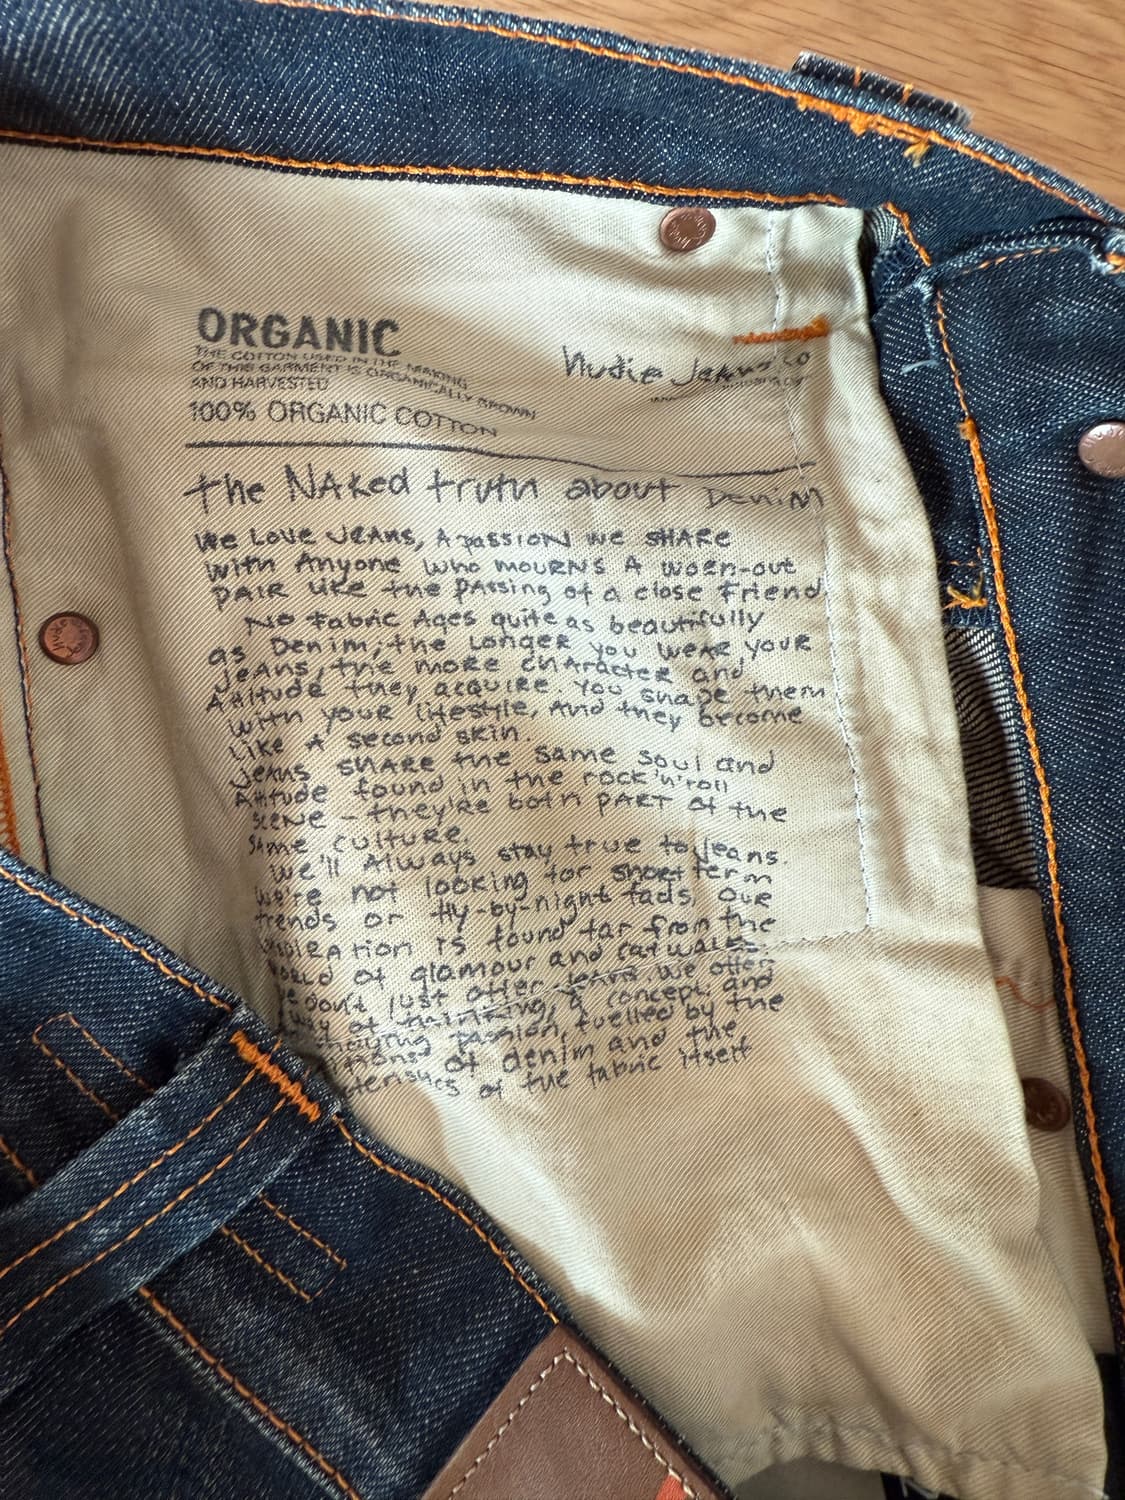 ORGANIC
THE COTTON USED IN THE MAKING
OF THIS GARMENT IS ORGANICALLY GROWN
AND HARVESTED
100% ORGANIC COTTON
Nudie Jeans co
the NAKed truth about DeniM
We Love JeANs, A passioN we sHARe
with Anyone who mourNs A worn-out
PAIR like the pAssing of a close Friend
No fabric Ages quite as beautifully
as Denim; the Longer you weAR your
JeAns, the more chAracter and
Attitude they acquire. You shape them
with your lifestyle, And they become
like A second skin.
JeAns sHARe the same soul and
Attitude found in the rock'n'roll
sceNe - they're both pART of the
sAme culture.
we'll Always stay true to Jeans.
we're not looking for short term
trends or fly-by-night fads. Our
is found far from the
of glamour and catwalks.
don't just offer jeans. we offer
of thinking, a concept and
passion, fuelled by the
of denim and the
of the fabric itself